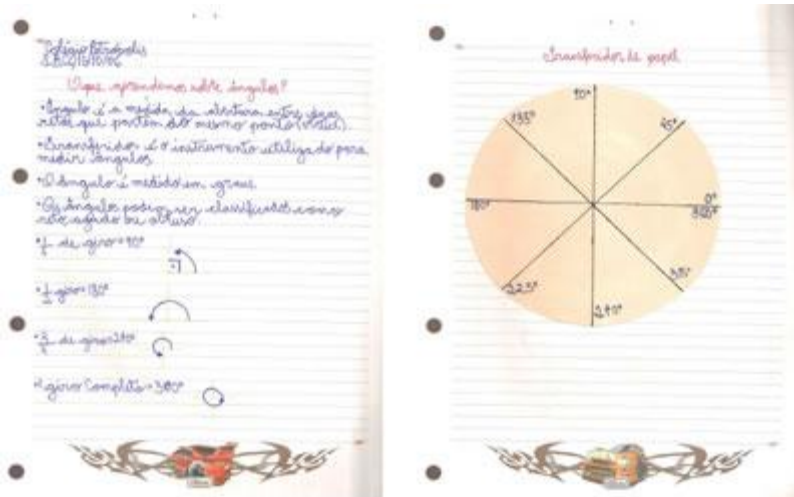 Colégio Petrópolis
S.B.C., 13/10/06
O que aprendemos sobre ângulos?
• Ângulo é a medida da abertura entre duas
retas que partem do mesmo ponto (vértice).
• Transferidor é o instrumento utilizado para
medir ângulos.
• O ângulo é medido em graus.
• Os ângulos podem ser classificados como
reto agudo ou obtuso.
• 1/4 de giro = 90°
• 1/2 giro = 180°
• 3/4 de giro = 270°
• 1 giro Completo = 360°
Transferidor de papel
90°
135°
45°
180°
0°
360°
225°
315°
270°